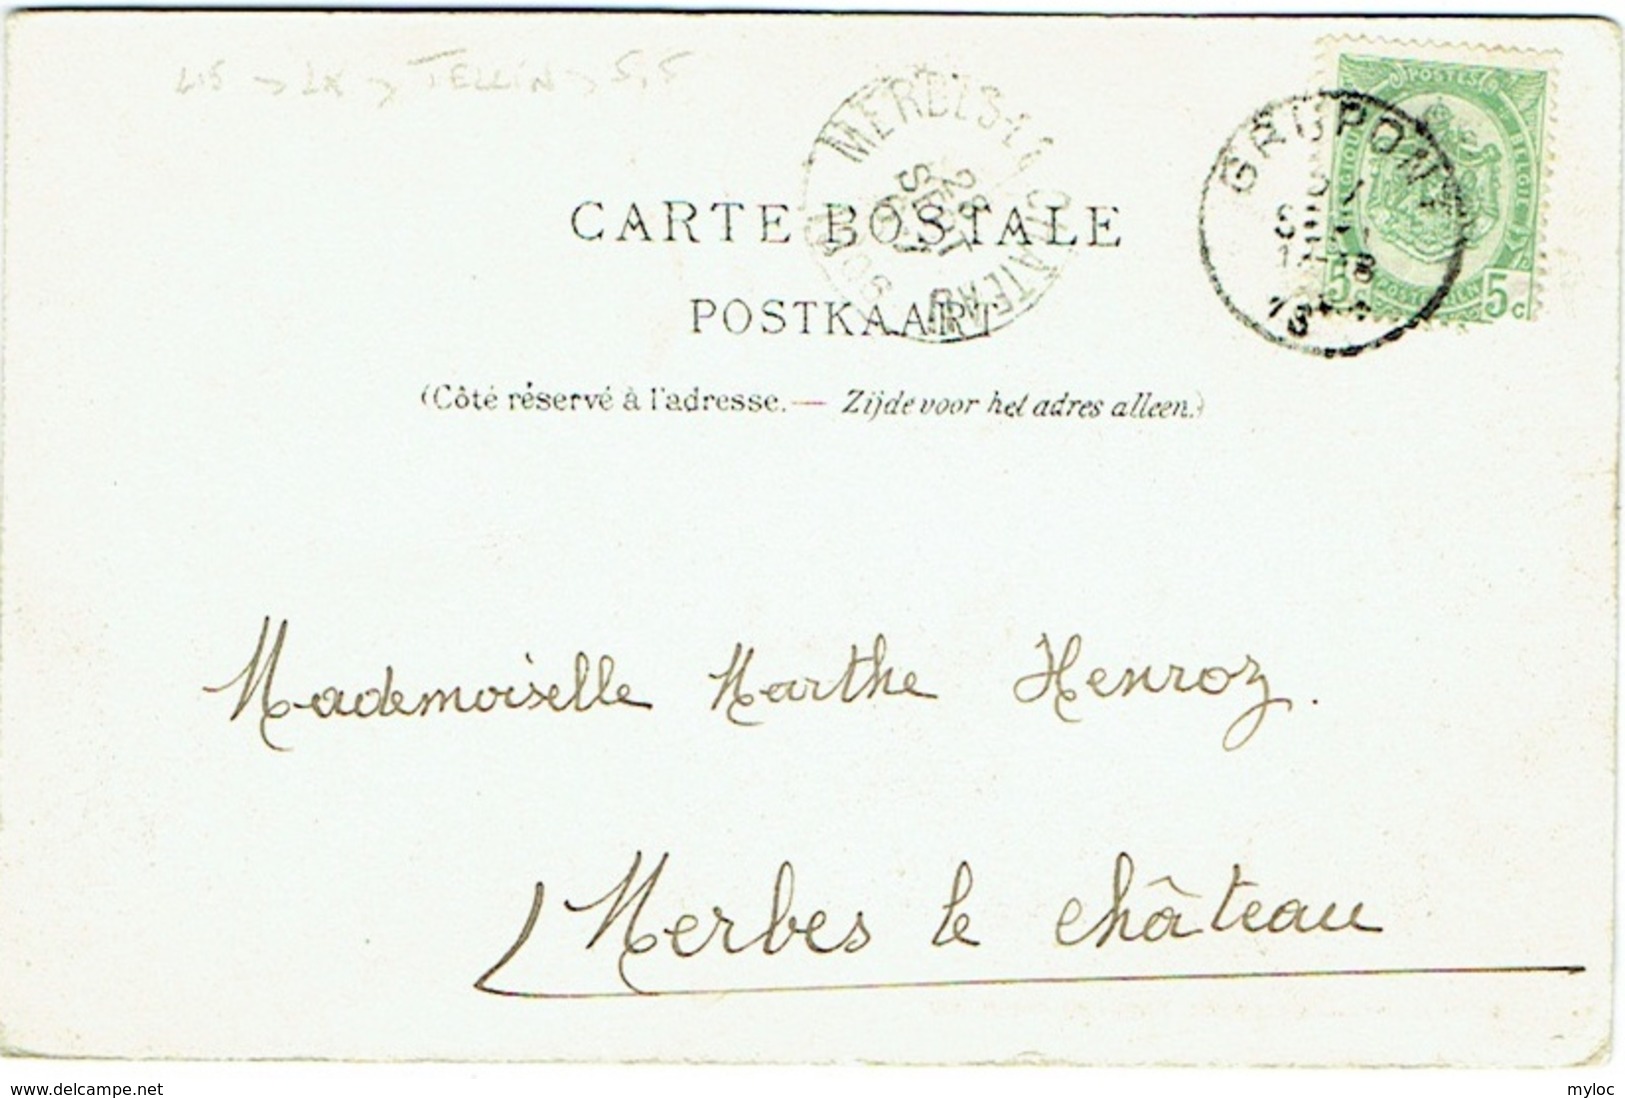 TELLIN > 5,5
MERBES-LE CHATEAU
28 SEPT
GRUPONT
POSTES
BELGIQUE
BELGIE
POSTERIJEN
5c 5c
CARTE POSTALE
POSTKAART
(Côté réservé à l'adresse. — Zijde voor het adres alleen.)
Mademoiselle Marthe Henroz.
Merbes le château
www.delcampe.net
myloc